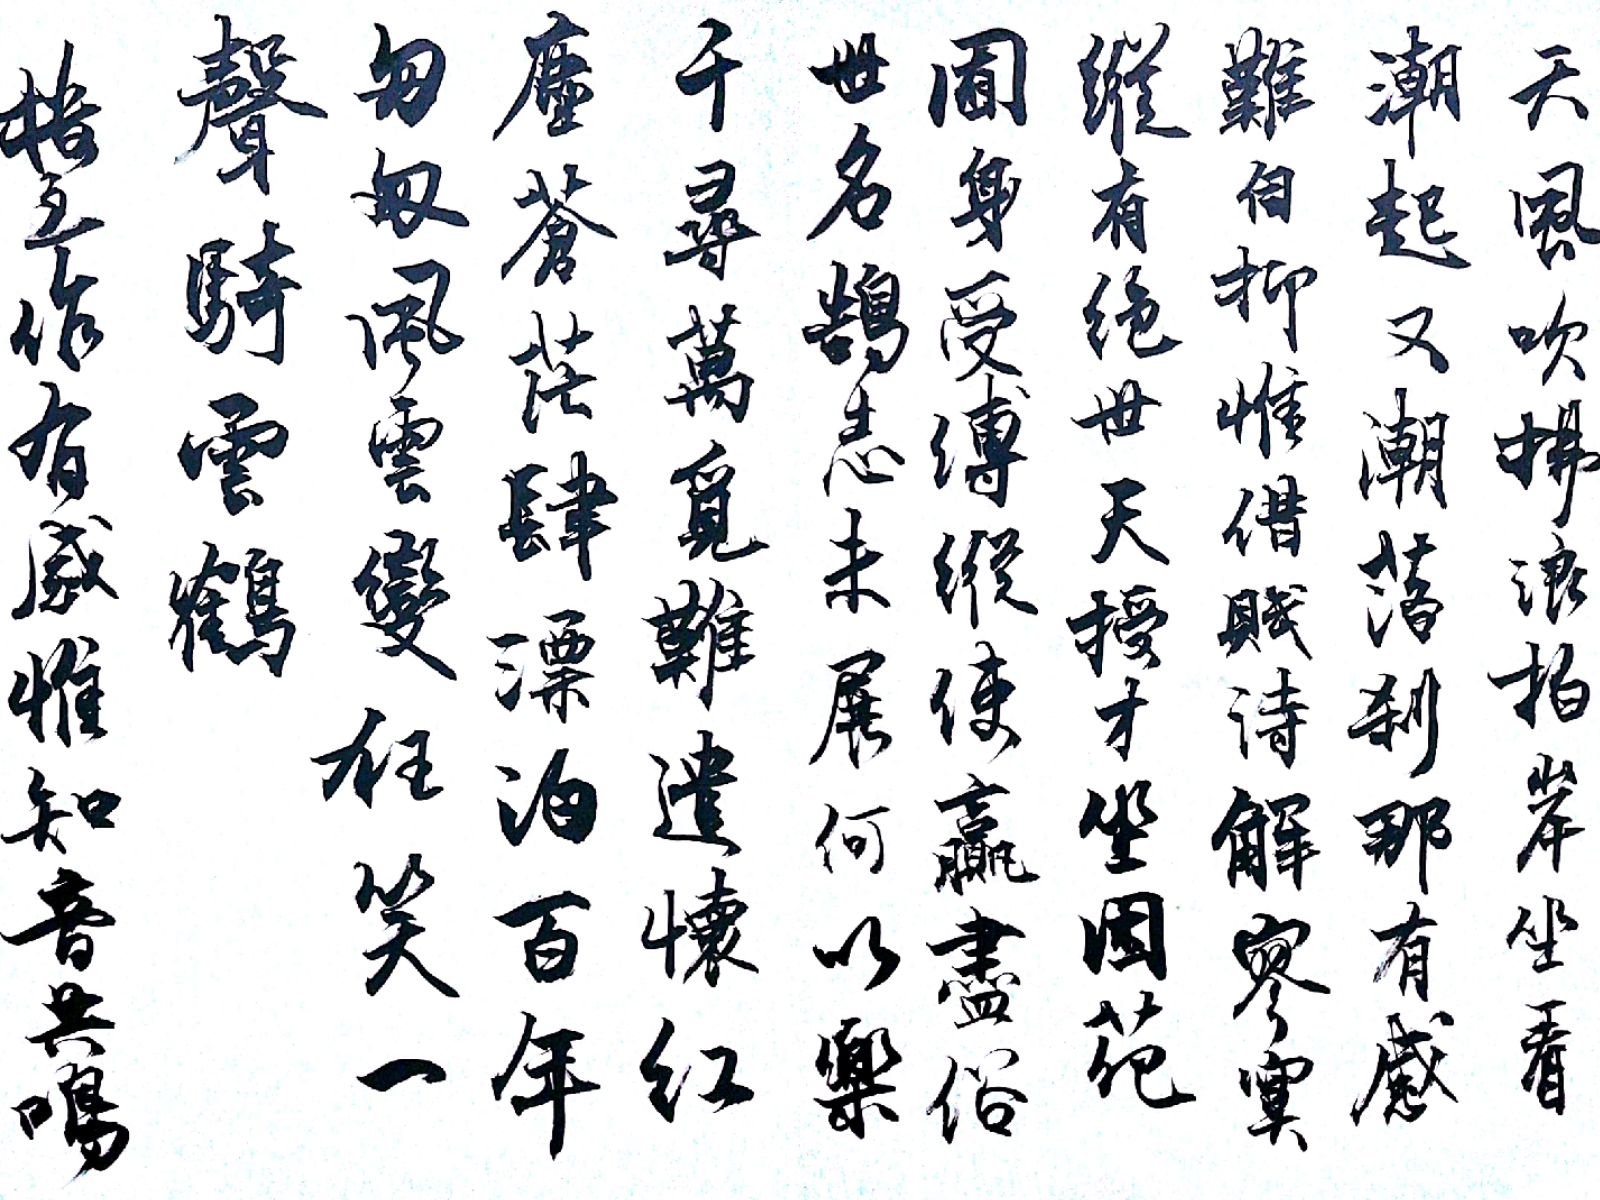 天風吹拂浪拍岸坐看
潮起又潮落刹那有感
難自抑惟借賤詩解寥寞
縱有絶世天授才坐困苑
囿身受縛縱使贏盡俗
世名鵠志未展何以樂
千尋萬覓難遣懷紅
塵蒼茫肆漂泊百年
匆匆風雲變狂笑一
聲騎雲鶴
作有感惟知音共鳴